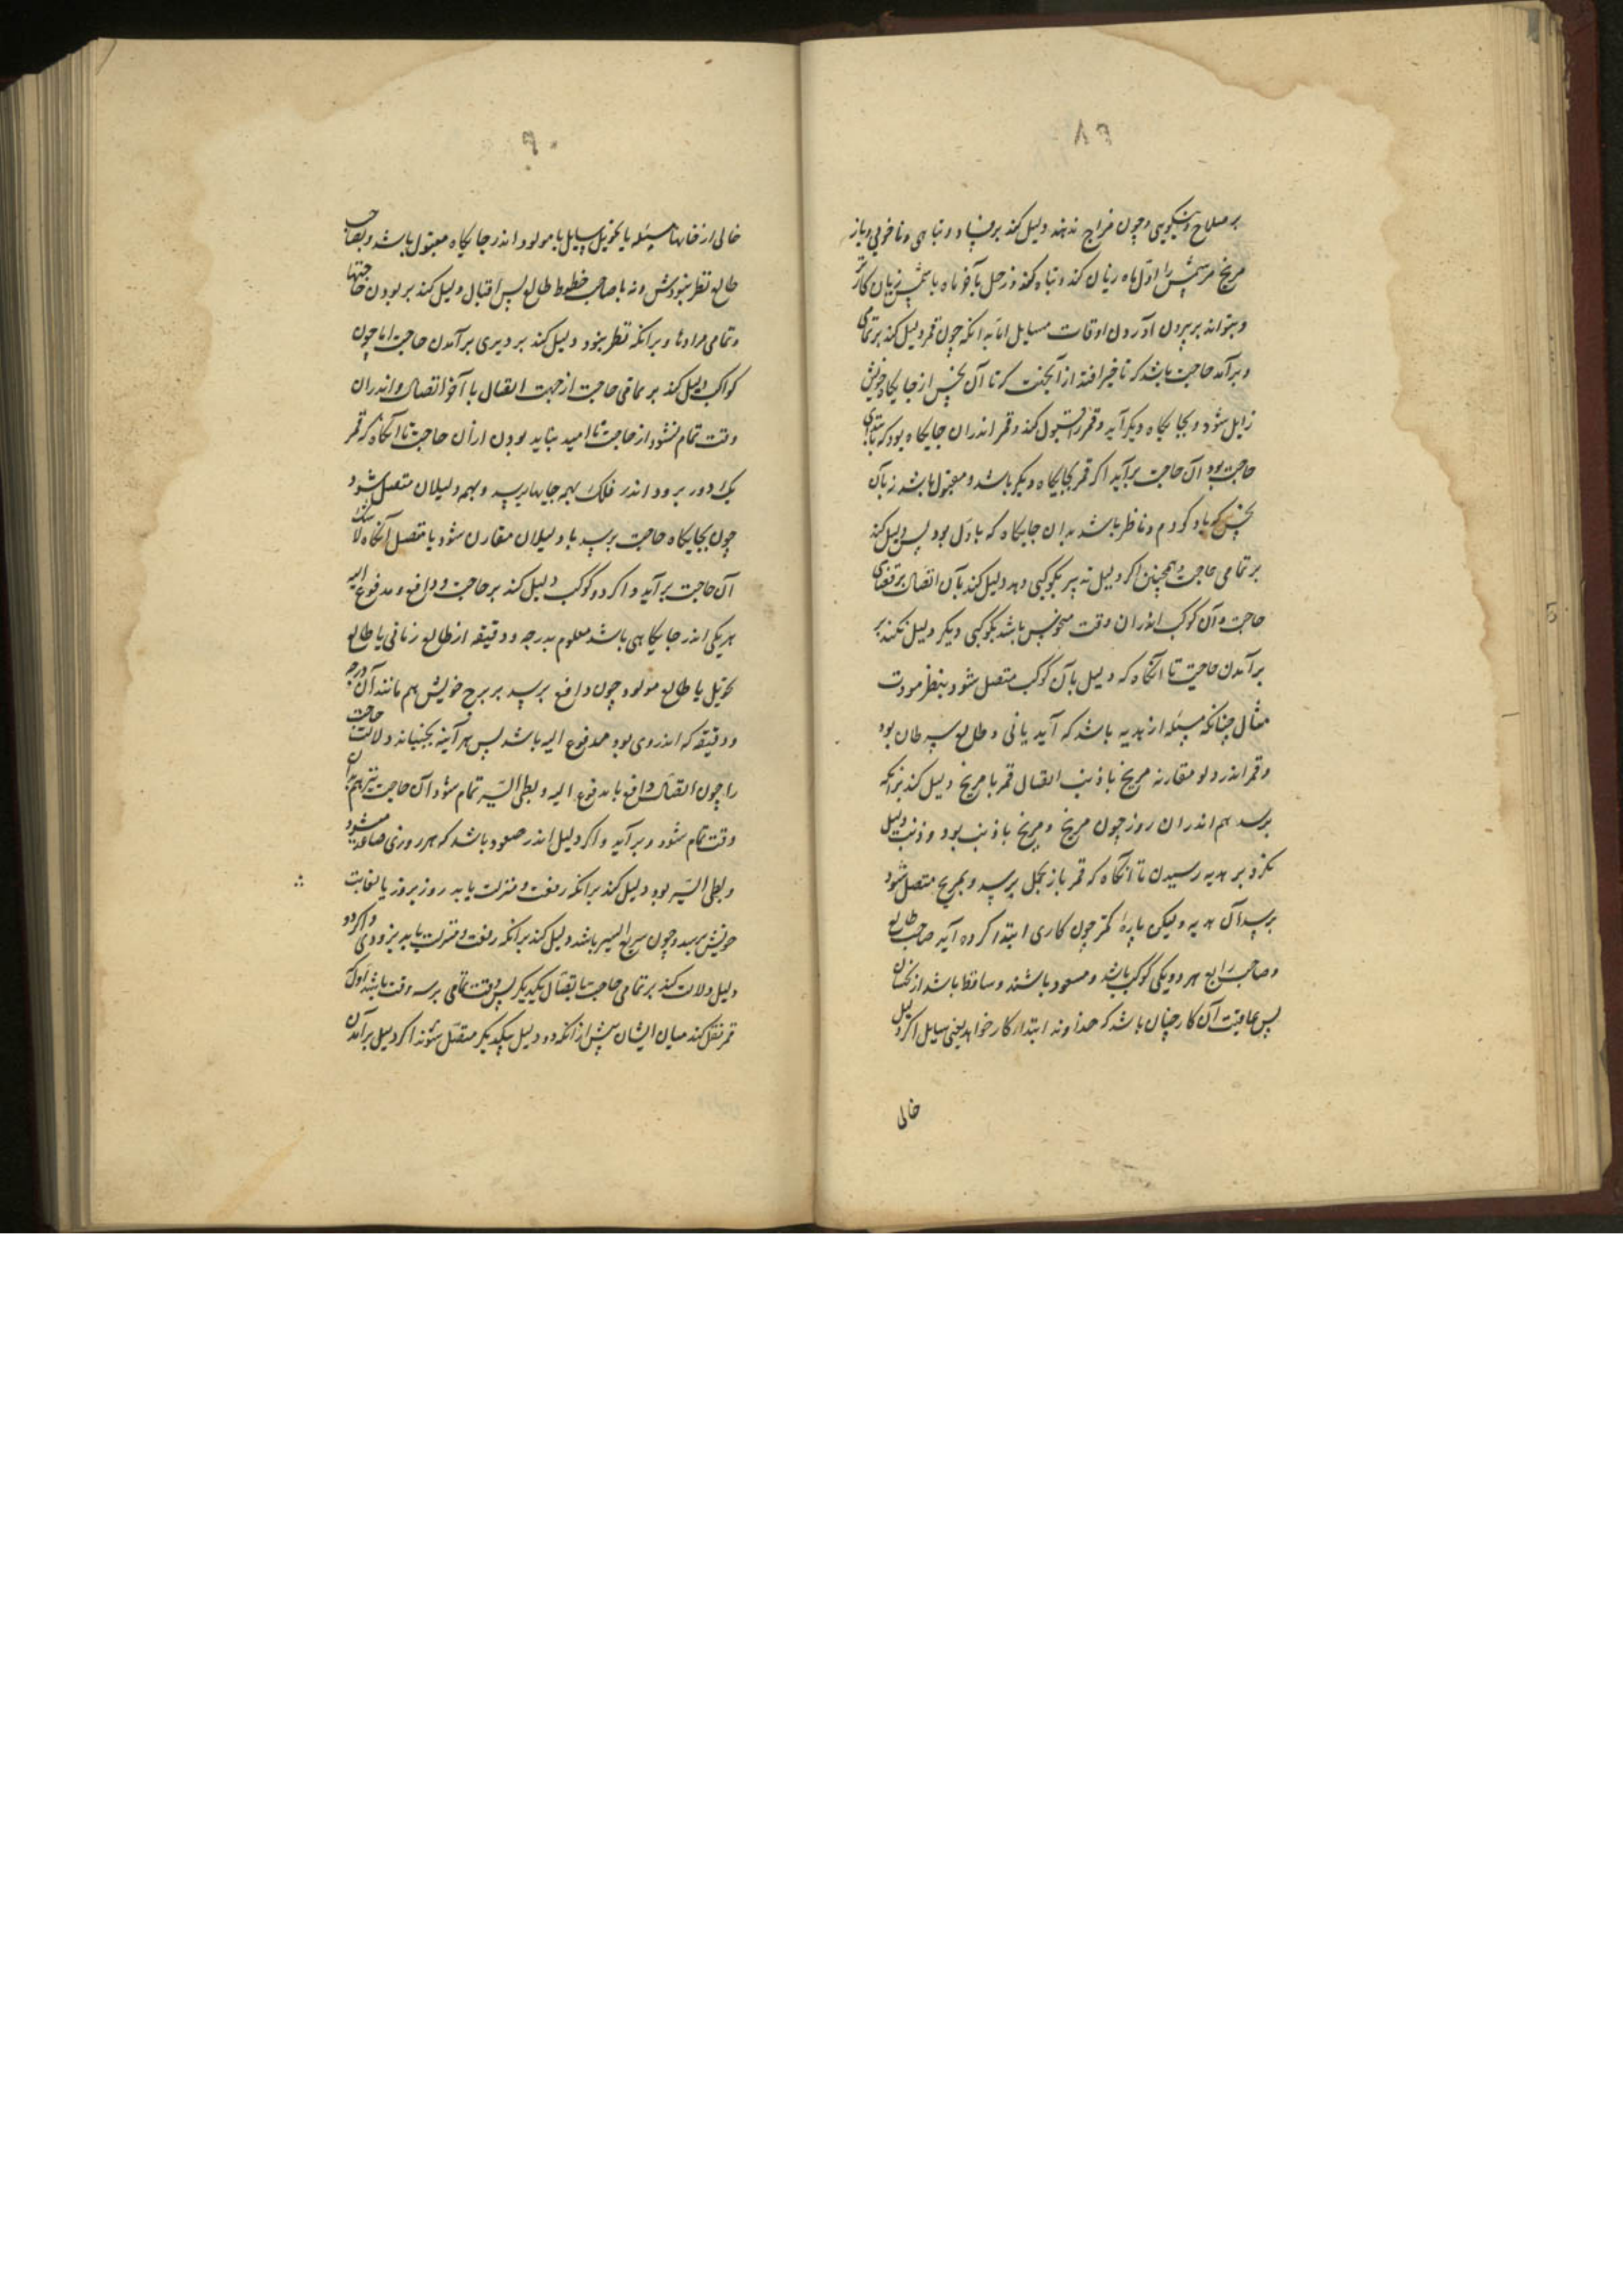 ۸۹
بر صلاح و نیکویی و چون مزاج ندهند دلیل کند بر فساد و تباهی و ناخوبی و باز
مریخ مر شمس را اول ماه زیان کند و تباه کند و زحل بآخر ماه با شمس زیان کارتر
و بتواند بر بیرون آوردن اوقات مسایل اما به انکه چون قمر دلیل کند بر تمامی
و بر آمد حاجت باشد که تاخیر افتد از آنجهت که تا آن نحس از جایگاه خویش
زایل شود و بجایگاه دیگر آید و قمر را قبول کند و قمر اندران جایگاه بود که
حاجت بود آن حاجت برآید اگر قمر بجایگاه دیگر باشد و مقبول باشد زبان
نحس که یاد کردم و ناظر باشد بدان جایگاه که باول بود پس دلیل کند
بر تمامی حاجت و همچنین اگر دلیل تدبیر بکوکبی دهد دلیل کند بآن اتصال بر قضای
حاجت و آن کوکب اندران وقت منحوس باشد بکوکبی دیگر دلیل نکند بر
برآمدن حاجت تا آنگاه که دلیل بآن کوکب متصل شود بنظر مودت
مثال چنانکه مسئله از هدیه باشد که آید یا نی و طالع سرطان بود
و قمر اندر دلو مقارنه مریخ با ذنب اتصال قمر با مریخ دلیل کند بر انکه
برسد هم اندران روز چون مریخ و مریخ با ذنب بود و ذنب دلیل
نکرد بر هدیه رسیدن تا آنگاه که قمر باز بحمل برسد و بمریخ متصل شود
برسد آن هدیه ولیکن پاره کمتر چون کاری ابتدا کرده آید صاحب طالع
و صاحب رابع هر دو یکی کوکب باشد و مسعود باشند و ساقط باشد از نحسان
پس عاقبت آن کار چنان باشد که خداوند ابتداء کار خواهد یعنی سایل اگر دلیل
خالی
۹۰
خالی از خانهاء مسئله یا تحویل سایل یا مولود اندر جایگاه مقبول باشد و بصاحب
طالع نظر نبودش و نه با صاحب حظوظ طالع پس اقبال دلیل کند بر بودن حاجتها
و تمامی مرادها و برانکه نظر نبود دلیل کند بر دیری برآمدن حاجت اما چون
کواکب دلیل کند بر تمامی حاجت از جهت اتصال یا آخر اتصال و اندران
وقت تمام نشود از حاجت نا امید نباید بودن از آن حاجت تا آنگاه که قمر
یک دور برود اندر فلک بهمه جایها برسد و بهم دلیلان متصل شود
چون بجایگاه حاجت برسد با دلیلان مقارن شود یا متصل آنگاه لابد
آن حاجت برآید و اگر دو کوکب دلیل کند بر حاجت و دافع و مدفوع الیه
هر یکی اندر جایگاهی باشد معلوم بدرجه و دقیقه از طالع زمانی یا طالع
تحویل یا طالع مولود چون دافع برسد بر برج خویش هم مانند آن درجه
و دقیقه که اندروی بود مدفوع الیه باشد پس هر آینه بجنباند دلالت حاجت
را چون اتصال دافع با مدفوع الیه و بطی السیر تمام شود آن حاجت نیز هم بران
وقت تمام شود و برآید و اگر دلیل اندر صعود باشد که هر روزی صاعد میشود
و بطی السیر بود دلیل کند برانکه رفعت و منزلت یابد روز بروز یا لغایت
خویش برسد و چون سریع السیر باشد دلیل کند برانکه رفعت و منزلت یابد بزودی و اگر دو
دلیل دلالت کند بر تمامی حاجت باتصال یکدیگر پس وقت تمامی بر سه وقت باشد اول آنکه
قمر نقل کند میان ایشان پیش از آنکه دو دلیل بیکدیگر متصل شوند اگر دلیل برآمدن